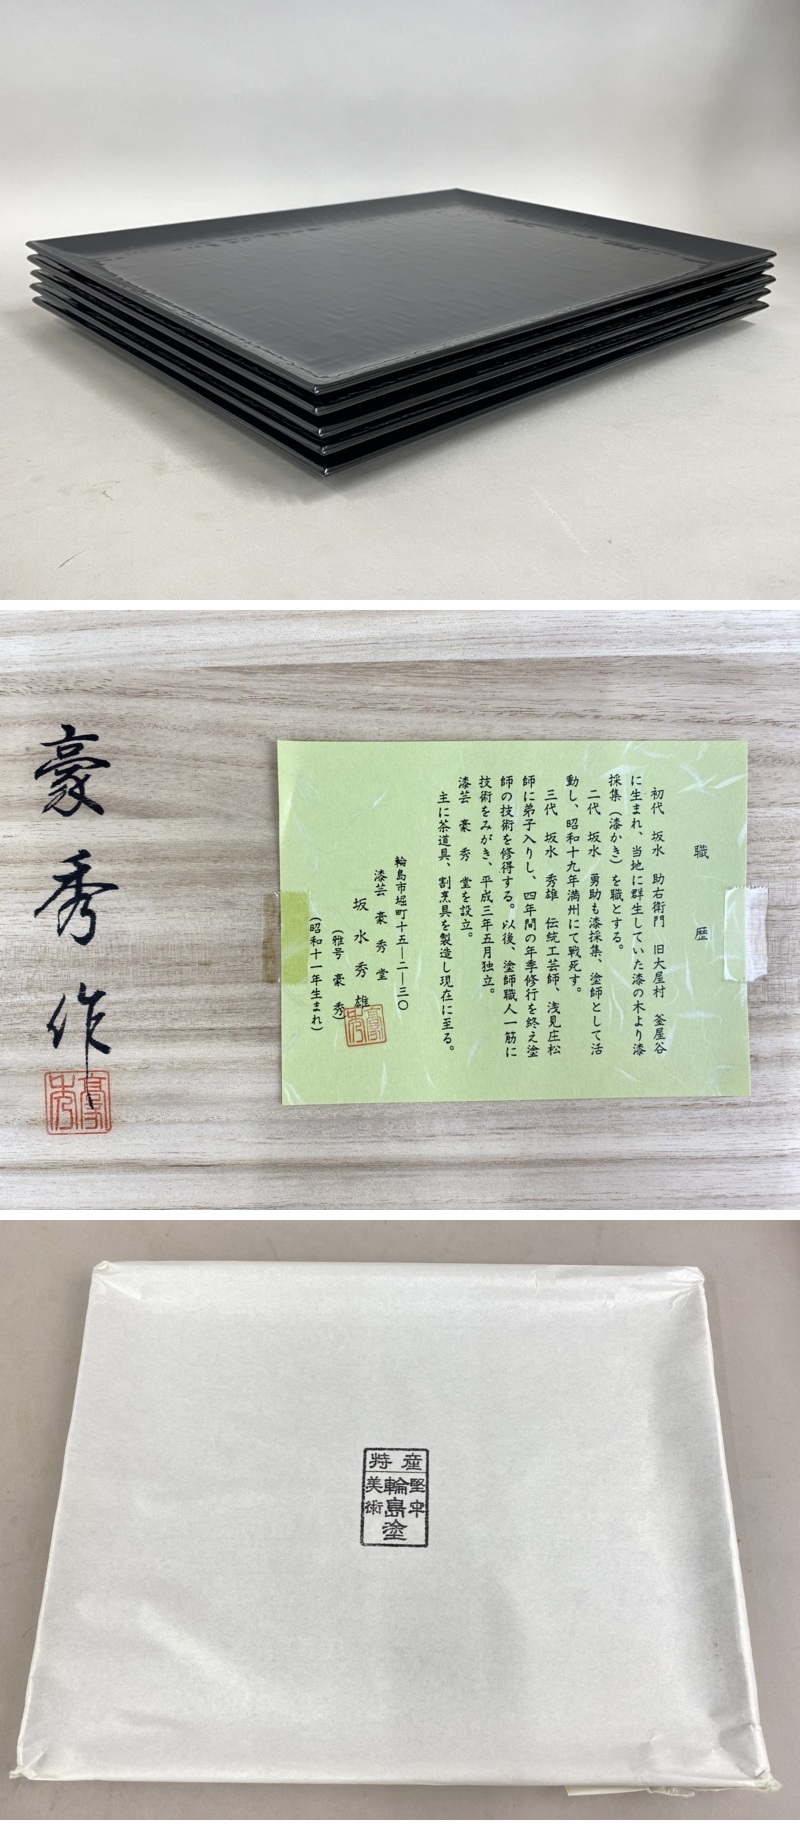 豪秀作
豪秀
職歴
初代 坂水 助右衛門 旧大屋村 釜屋谷
に生まれ、当地に群生していた漆の木より漆
採集（漆かき）を職とする。
二代 坂水 勇助も漆採集、塗師として活
動し、昭和十九年満州にて戦死す。
三代 坂水 秀雄 伝統工芸師、浅見庄松
師に弟子入りし、四年間の年季修行を終え塗
師の技術を修得する。以後、塗師職人一筋に
技術をみがき、平成三年五月独立。
漆芸 豪秀 堂を設立。
主に茶道具、割烹具を製造し現在に至る。
輪島市堀町十五―二―三〇
漆芸 豪秀堂
坂水秀雄
（雅号 豪秀）
（昭和十一年生まれ）
豪秀
特産
堅牢
輪島塗
美術